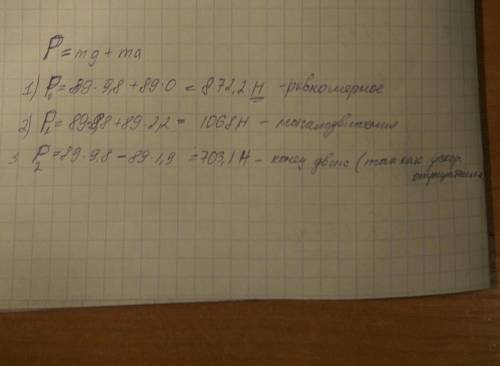 P = mg + ma
1) P₀ = 89·9,8 + 89·0 = 872,2 Н - равномерное
2) P₁ = 89·9,8 + 89·2,2 = 1068 Н - начало движения
3 P₂ = 89·9,8 - 89·1,9 = 703,1 Н - конец движ (так как ускор.
отрицательно)